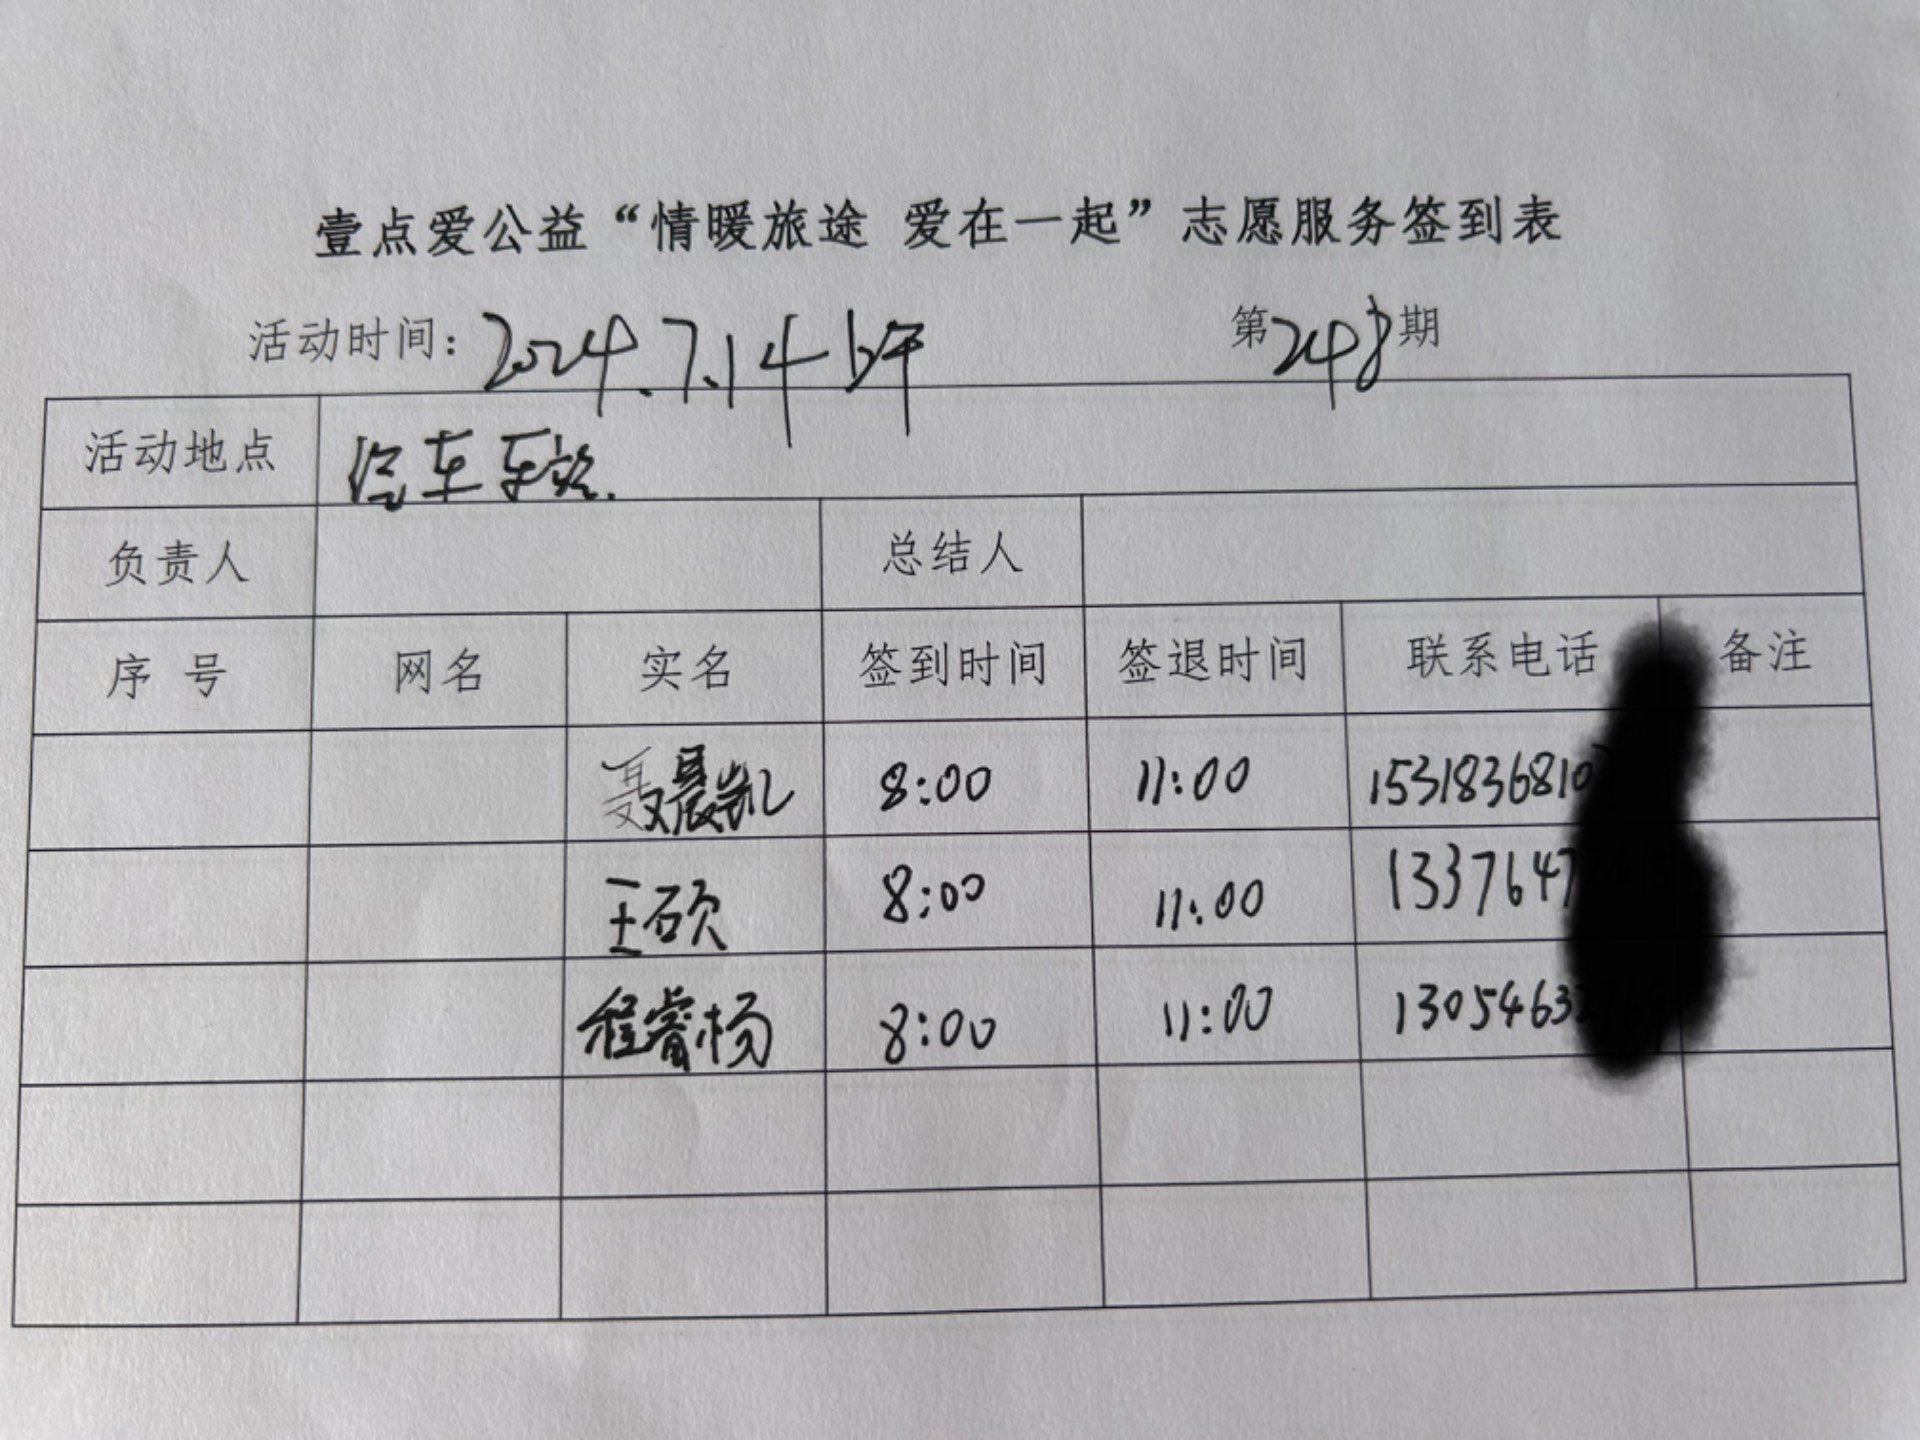 壹点爱公益“情暖旅途 爱在一起”志愿服务签到表
活动时间：2024.7.14上午 第248期
活动地点 汽车东站.
负责人 总结人
序 号 网名 实名 签到时间 签退时间 联系电话 备注
聂晨凯 8:00 11:00 1531836810
王硕 8:00 11:00 1337647
程睿杨 8:00 11:00 1305463